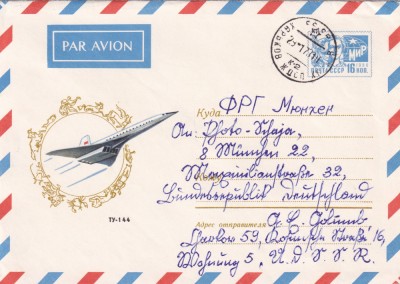 PAR AVION
МИР
ПОЧТА СССР 16 КОП.
Куда ФРГ Мюнхен
An: Photo-Schaja,
8 München 22,
Maximilianstraße 32,
Bundesrepublik Deutschland
ТУ-144
Адрес отправителя G. E. Golub
Charkow 59, Straße 16,
Wohnung 5. U. d. S. S. R.